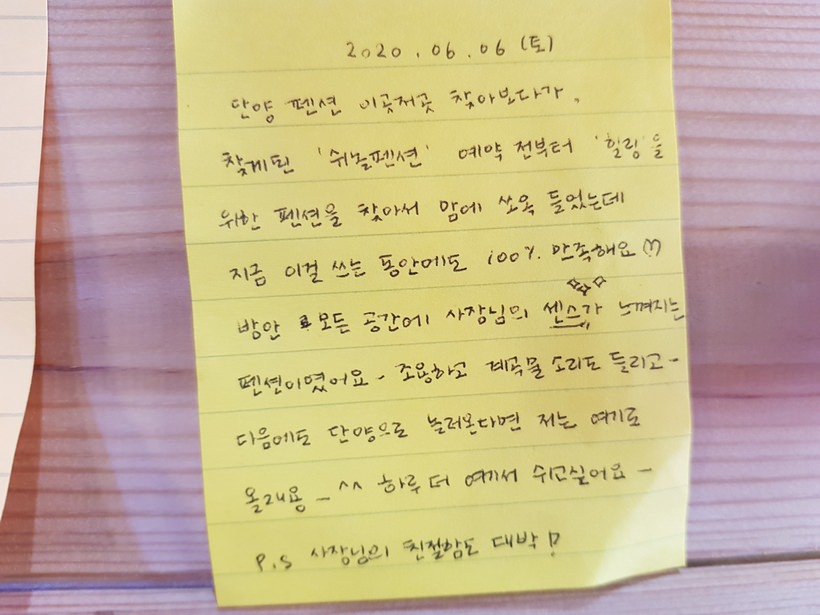 2020.06.06 (토)
단양 펜션 이곳저곳 찾아보다가,
찾게된 '쉬놀펜션' 예약 전부터 '힐링'을
위한 펜션을 찾아서 맘에 쏘옥 들었는데
지금 이걸 쓰는 동안에도 100% 만족해요
방안 모든 공간에 사장님의 센스가 느껴지는
펜션이였어요 - 조용하고 계곡물 소리도 들리고 -
다음에도 단양으로 놀러온다면 저는 여기로
올래용 - ^^ 하루 더 여기서 쉬고싶어요 -
P.S 사장님의 친절함도 대박!